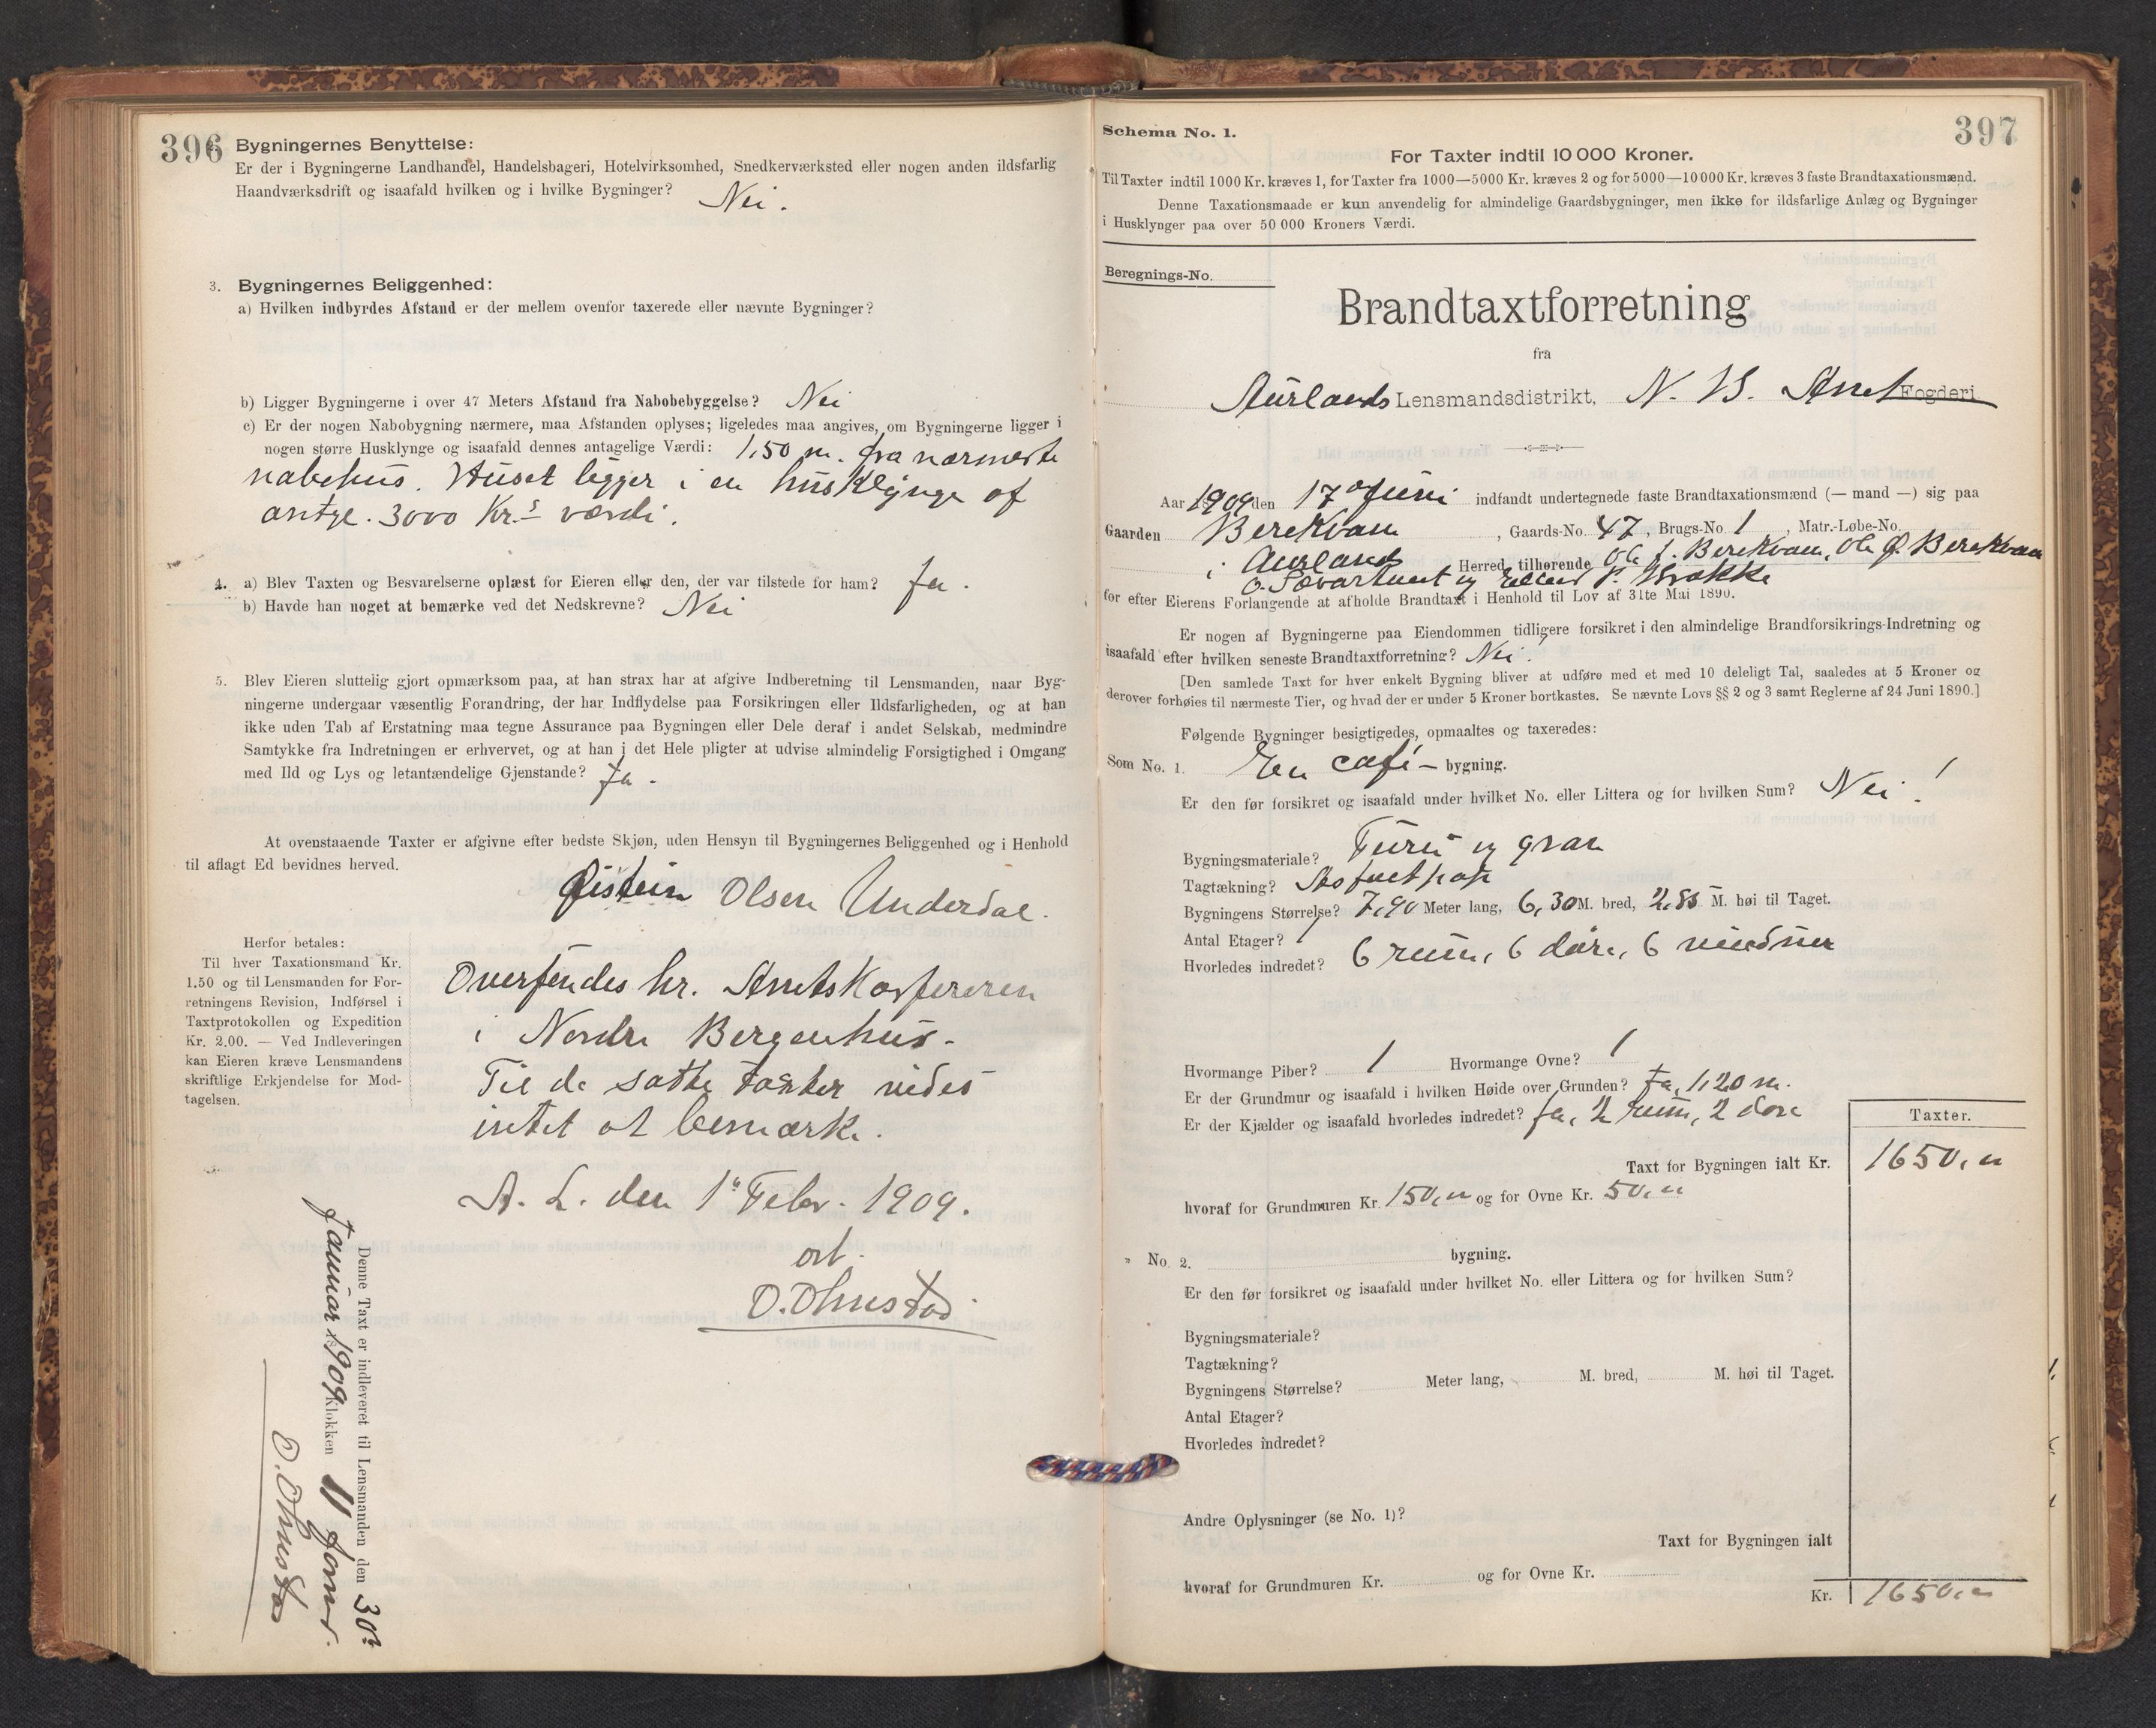 396
Bygningernes Benyttelse:
Er der i Bygningerne Landhandel, Handelsbageri, Hotelvirksomhed, Snedkerværksted eller nogen anden ildsfarlig
Haandværksdrift og isaafald hvilken og i hvilke Bygninger? Nei.
3. Bygningernes Beliggenhed:
a) Hvilken indbyrdes Afstand er der mellem ovenfor taxerede eller nævnte Bygninger?
b) Ligger Bygningerne i over 47 Meters Afstand fra Nabobebyggelse? Nei
c) Er der nogen Nabobygning nærmere, maa Afstanden oplyses; ligeledes maa angives, om Bygningerne ligger i
nogen større Husklynge og isaafald dennes antagelige Værdi: 1,50 m. fra nærmeste
nabohus. Huset ligger i en husklynge af
antgl. 3000 Kr.s værdi.
4. a) Blev Taxten og Besvarelserne oplæst for Eieren eller den, der var tilstede for ham? Ja.
b) Havde han noget at bemærke ved det Nedskrevne? Nei
5. Blev Eieren sluttelig gjort opmærksom paa, at han strax har at afgive Indberetning til Lensmanden, naar Byg-
ningerne undergaar væsentlig Forandring, der har Indflydelse paa Forsikringen eller Ildsfarligheden, og at han
ikke uden Tab af Erstatning maa tegne Assurance paa Bygningen eller Dele deraf i andet Selskab, medmindre
Samtykke fra Indretningen er erhvervet, og at han i det Hele pligter at udvise almindelig Forsigtighed i Omgang
med Ild og Lys og letantændelige Gjenstande? Ja.
At ovenstaaende Taxter er afgivne efter bedste Skjøn, uden Hensyn til Bygningernes Beliggenhed og i Henhold
til aflagt Ed bevidnes herved.
Øistein Olsen Underdal.
Herfor betales:
Til hver Taxationsmand Kr.
1.50 og til Lensmanden for For-
retningens Revision, Indførsel i
Taxtprotokollen og Expedition
Kr. 2.00. — Ved Indleveringen
kan Eieren kræve Lensmandens
skriftlige Erkjendelse for Mod-
tagelsen.
Oversendes hr. Amtskassereren
i Nordre Bergenhus.
Til de satte taxter vides
intet at bemærke.
A. L. den 1ste Febr. 1909.
O. Ohnstad
Denne Taxt er indleveret til Lensmanden den 30te
Januar 1909 Klokken 11 form.
O. Ohnstad
397
Schema No. 1.
For Taxter indtil 10 000 Kroner.
Til Taxter indtil 1000 Kr. kræves 1, for Taxter fra 1000—5000 Kr. kræves 2 og for 5000—10 000 Kr. kræves 3 faste Brandtaxationsmænd.
Denne Taxationsmaade er kun anvendelig for almindelige Gaardsbygninger, men ikke for ildsfarlige Anlæg og Bygninger
i Husklynger paa over 50 000 Kroners Værdi.
Beregnings-No.
Brandtaxtforretning
fra
Aurlands Lensmandsdistrikt, N. B. Amt Fogderi
Aar 1909 den 17de Juni indfandt undertegnede faste Brandtaxationsmænd (— mand —) sig paa
Gaarden Berekvam, Gaards-No. 47, Brugs-No. 1, Matr.-Løbe-No.
i Aurland Herred, tilhørende Ole J. Berekvam, Ole Ø. Berekvam
O. og P. Brække
for efter Eierens Forlangende at afholde Brandtaxt i Henhold til Lov af 31te Mai 1890.
Er nogen af Bygningerne paa Eiendommen tidligere forsikret i den almindelige Brandforsikrings-Indretning og
isaafald efter hvilken seneste Brandtaxtforretning? Nei.
[Den samlede Taxt for hver enkelt Bygning bliver at udføre med et med 10 deleligt Tal, saaledes at 5 Kroner og
derover forhøies til nærmeste Tier, og hvad der er under 5 Kroner bortkastes. Se nævnte Lovs §§ 2 og 3 samt Reglerne af 24 Juni 1890.]
Følgende Bygninger besigtigedes, opmaaltes og taxeredes:
Som No. 1. En café- bygning.
Er den før forsikret og isaafald under hvilket No. eller Littera og for hvilken Sum? Nei!
Bygningsmateriale? Furu og gran
Tagtækning? Asfaltpap
Bygningens Størrelse? 7,90 Meter lang, 6,30 M. bred, 2,85 M. høi til Taget.
Antal Etager? 1
Hvorledes indredet? 6 rum, 6 døre, 6 vinduer
Hvormange Piber? 1 Hvormange Ovne? 1
Er der Grundmur og isaafald i hvilken Høide over Grunden? Ja, 1,20 m.
Er der Kjælder og isaafald hvorledes indredet? Ja, 2 rum, 2 døre
Taxter.
Taxt for Bygningen ialt Kr. 1650,"
hvoraf for Grundmuren Kr. 150," og for Ovne Kr. 50,"
" No. 2. bygning.
Er den før forsikret og isaafald under hvilket No. eller Littera og for hvilken Sum?
Bygningsmateriale?
Tagtækning?
Bygningens Størrelse? Meter lang, M. bred, M. høi til Taget.
Antal Etager?
Hvorledes indredet?
Andre Oplysninger (se No. 1)?
Taxt for Bygningen ialt
hvoraf for Grundmuren Kr. og for Ovne Kr.
Kr. 1650,"